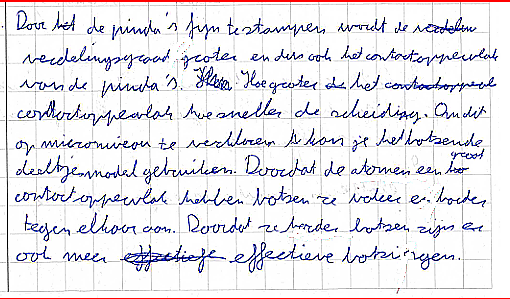 Door het de pinda's fijn te stampen wordt de verdelin
verdelingsgraad groter en dus ook het contactoppervlak
van de pinda's. Hoe groter is het contactoppervl
contactoppervlak hoe sneller de scheiding. Om dit
op microniveau te verklaren k kan je het botsende
deeltjesmodel gebruiken. Doordat de atomen een groot
contactoppervlak hebben botsen ze vaker en harder
tegen elkaar aan. Doordat ze harder botsen zijn er
ook meer effectiefe effectieve botsingen.